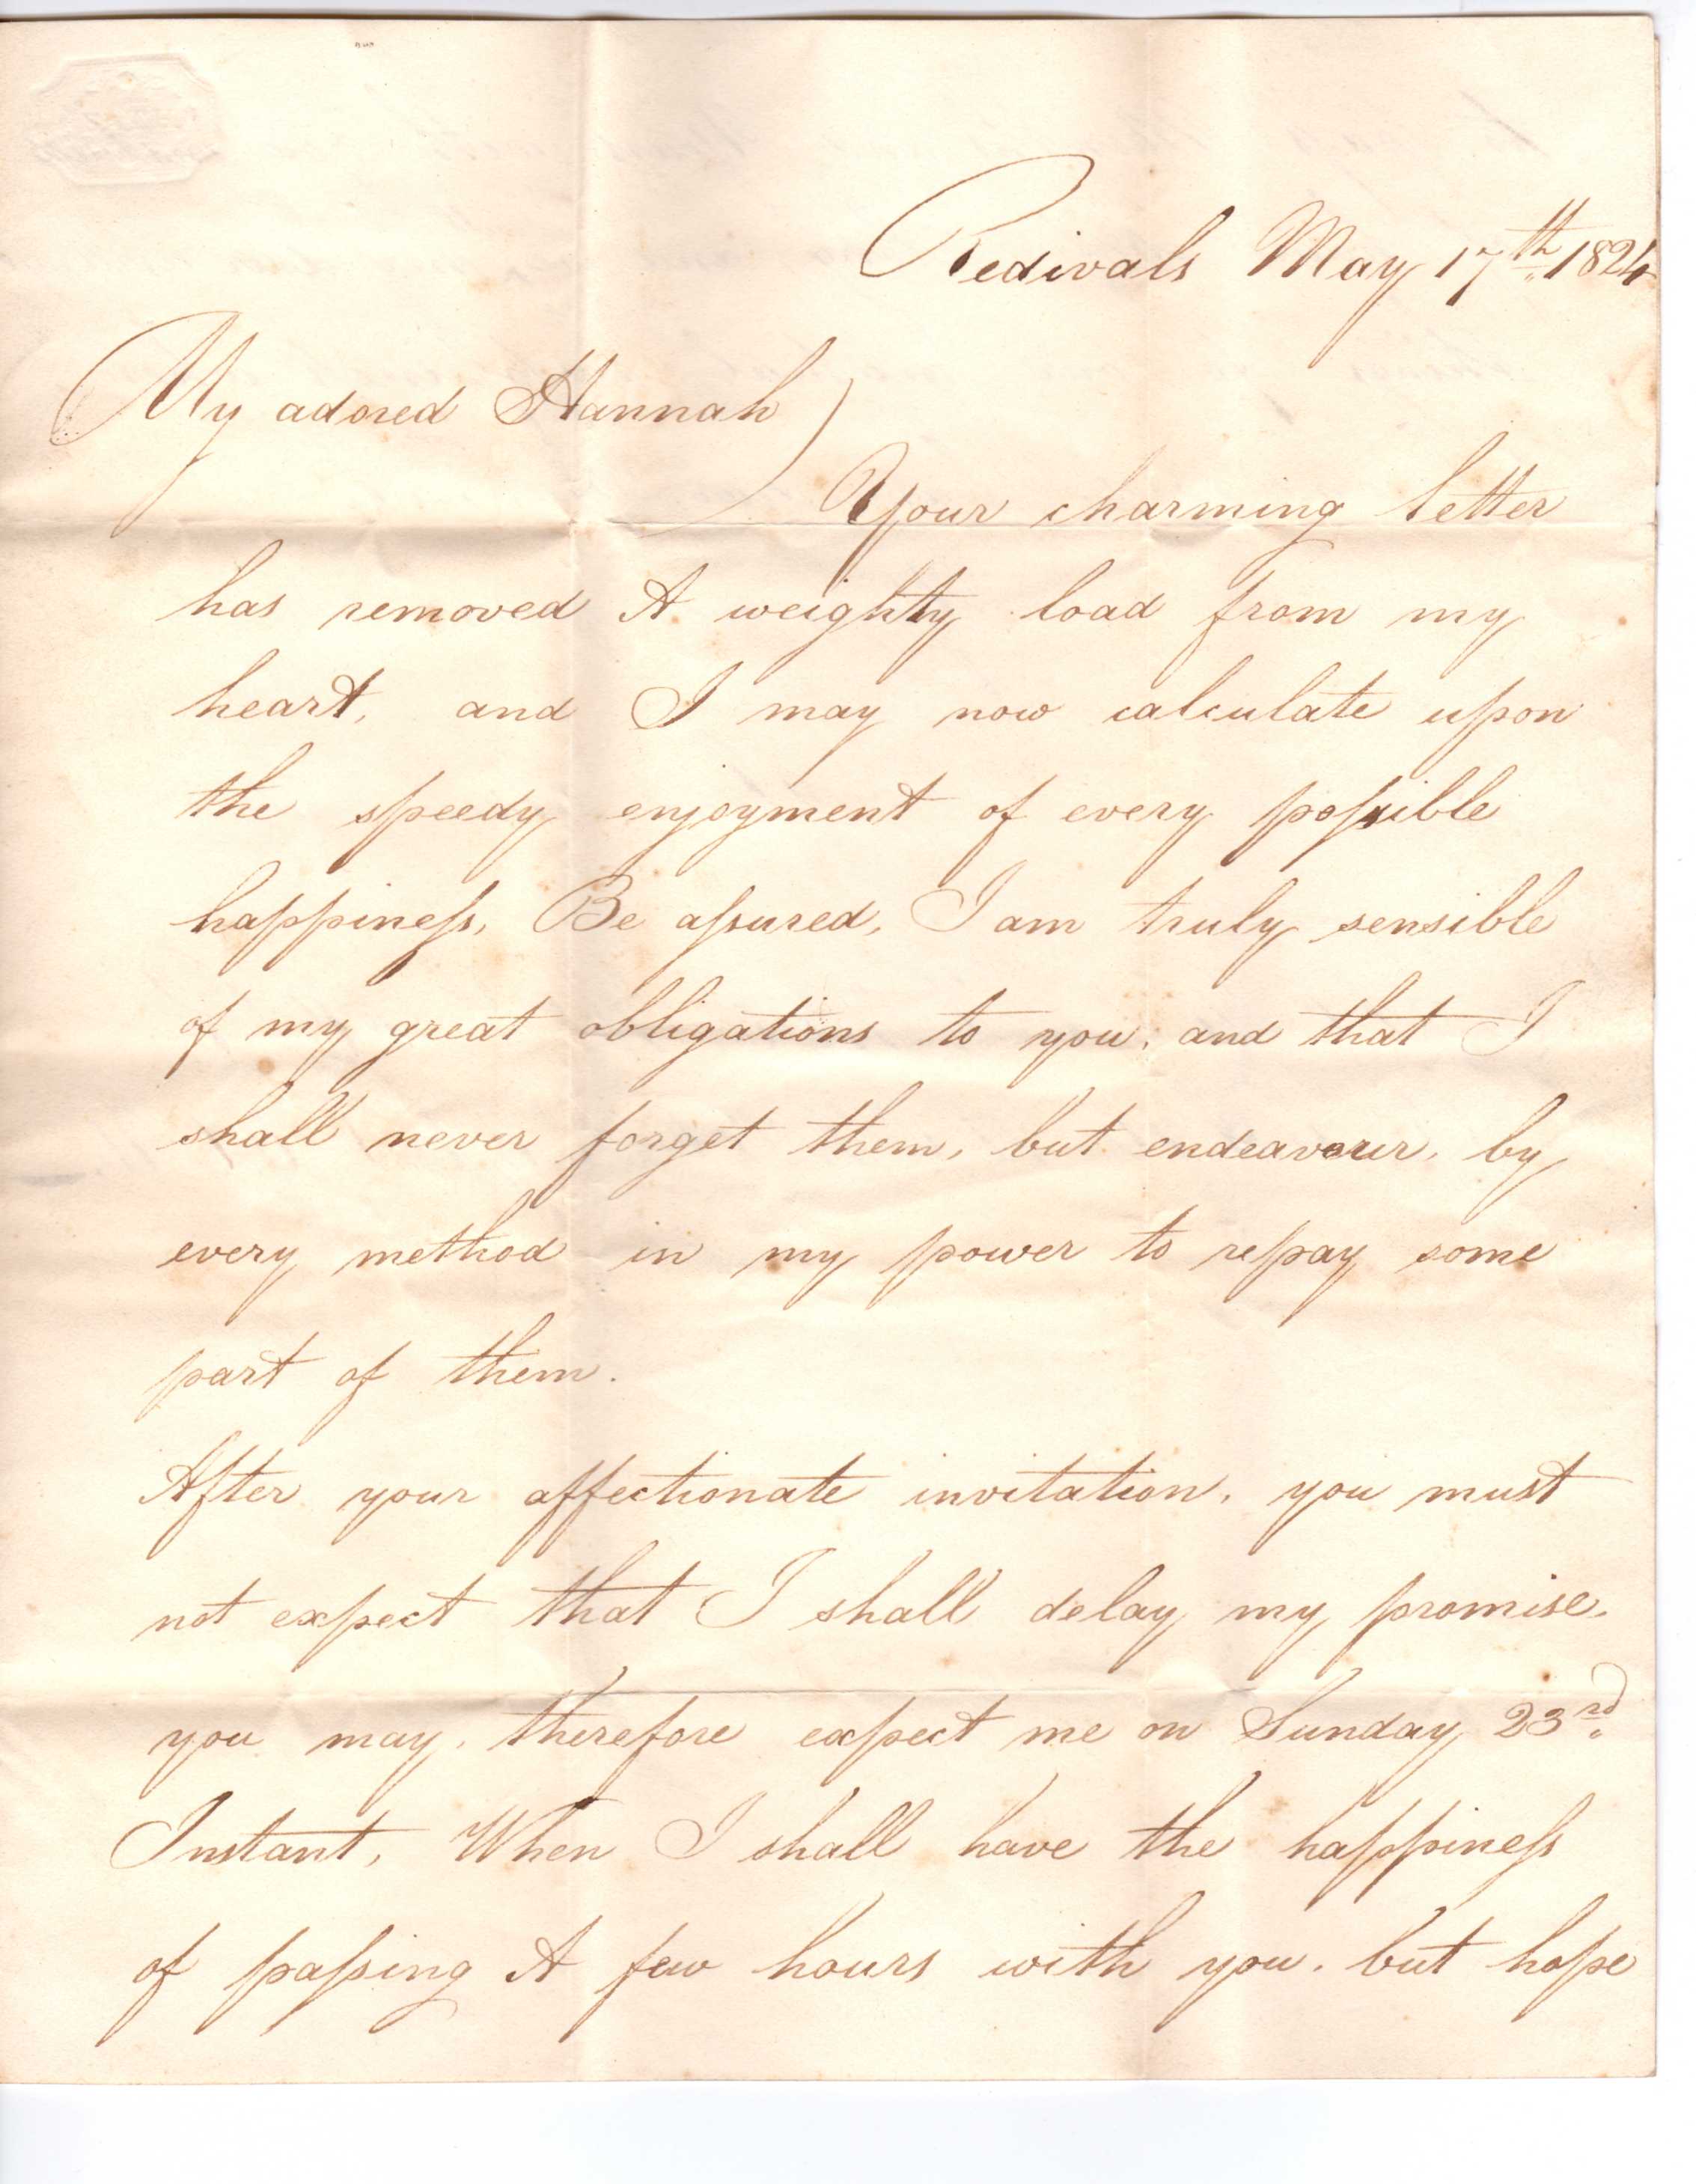 Redivals May 17th 1824
My adored Hannah
Your charming letter
has removed A weighty load from my
heart, and I may now calculate upon
the speedy enjoyment of every poſsible
happineſs, Be aſsured, I am truly sensible
of my great obligations to you; and that I
shall never forget them, but endeavour, by
every method in my power to repay some
part of them.
After your affectionate invitation, you must
not expect that I shall delay my promise.
you may, therefore expect me on Sunday 23rd
Instant, When I shall have the happineſs
of paſsing A few hours with you. but hope